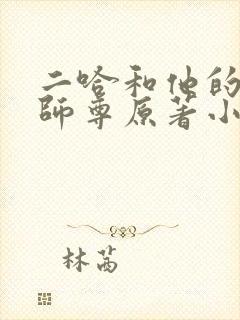 二哈和他的
師尊原著小
林茜